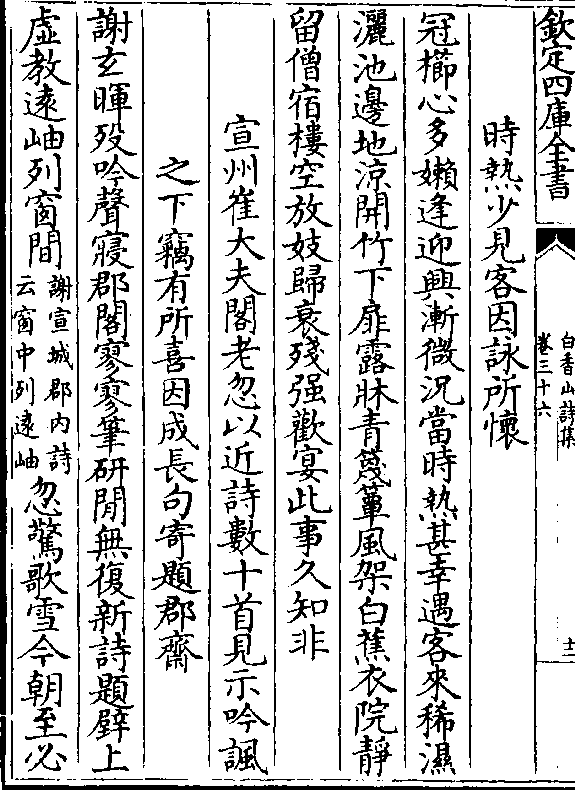 欽定四庫全書
白香山詩集
卷三十六
十二
時熱少見客因詠所懷
冠櫛心多嬾逢迎興漸微況當時熱甚幸遇客來稀濕
灑池邊地涼開竹下扉露牀青篾簟風架白蕉衣院靜
留僧宿樓空放妓歸衰殘强歡宴此事久知非
宣州崔大夫閣老忽以近詩數十首見示吟諷
之下竊有所喜因成長句寄題郡齋
謝玄暉歿吟聲寢郡閣寥寥筆硏閒無復新詩題壁上
虛教遠岫列窗間謝宣城郡內詩云窗中列遠岫忽驚歌雪今朝至必